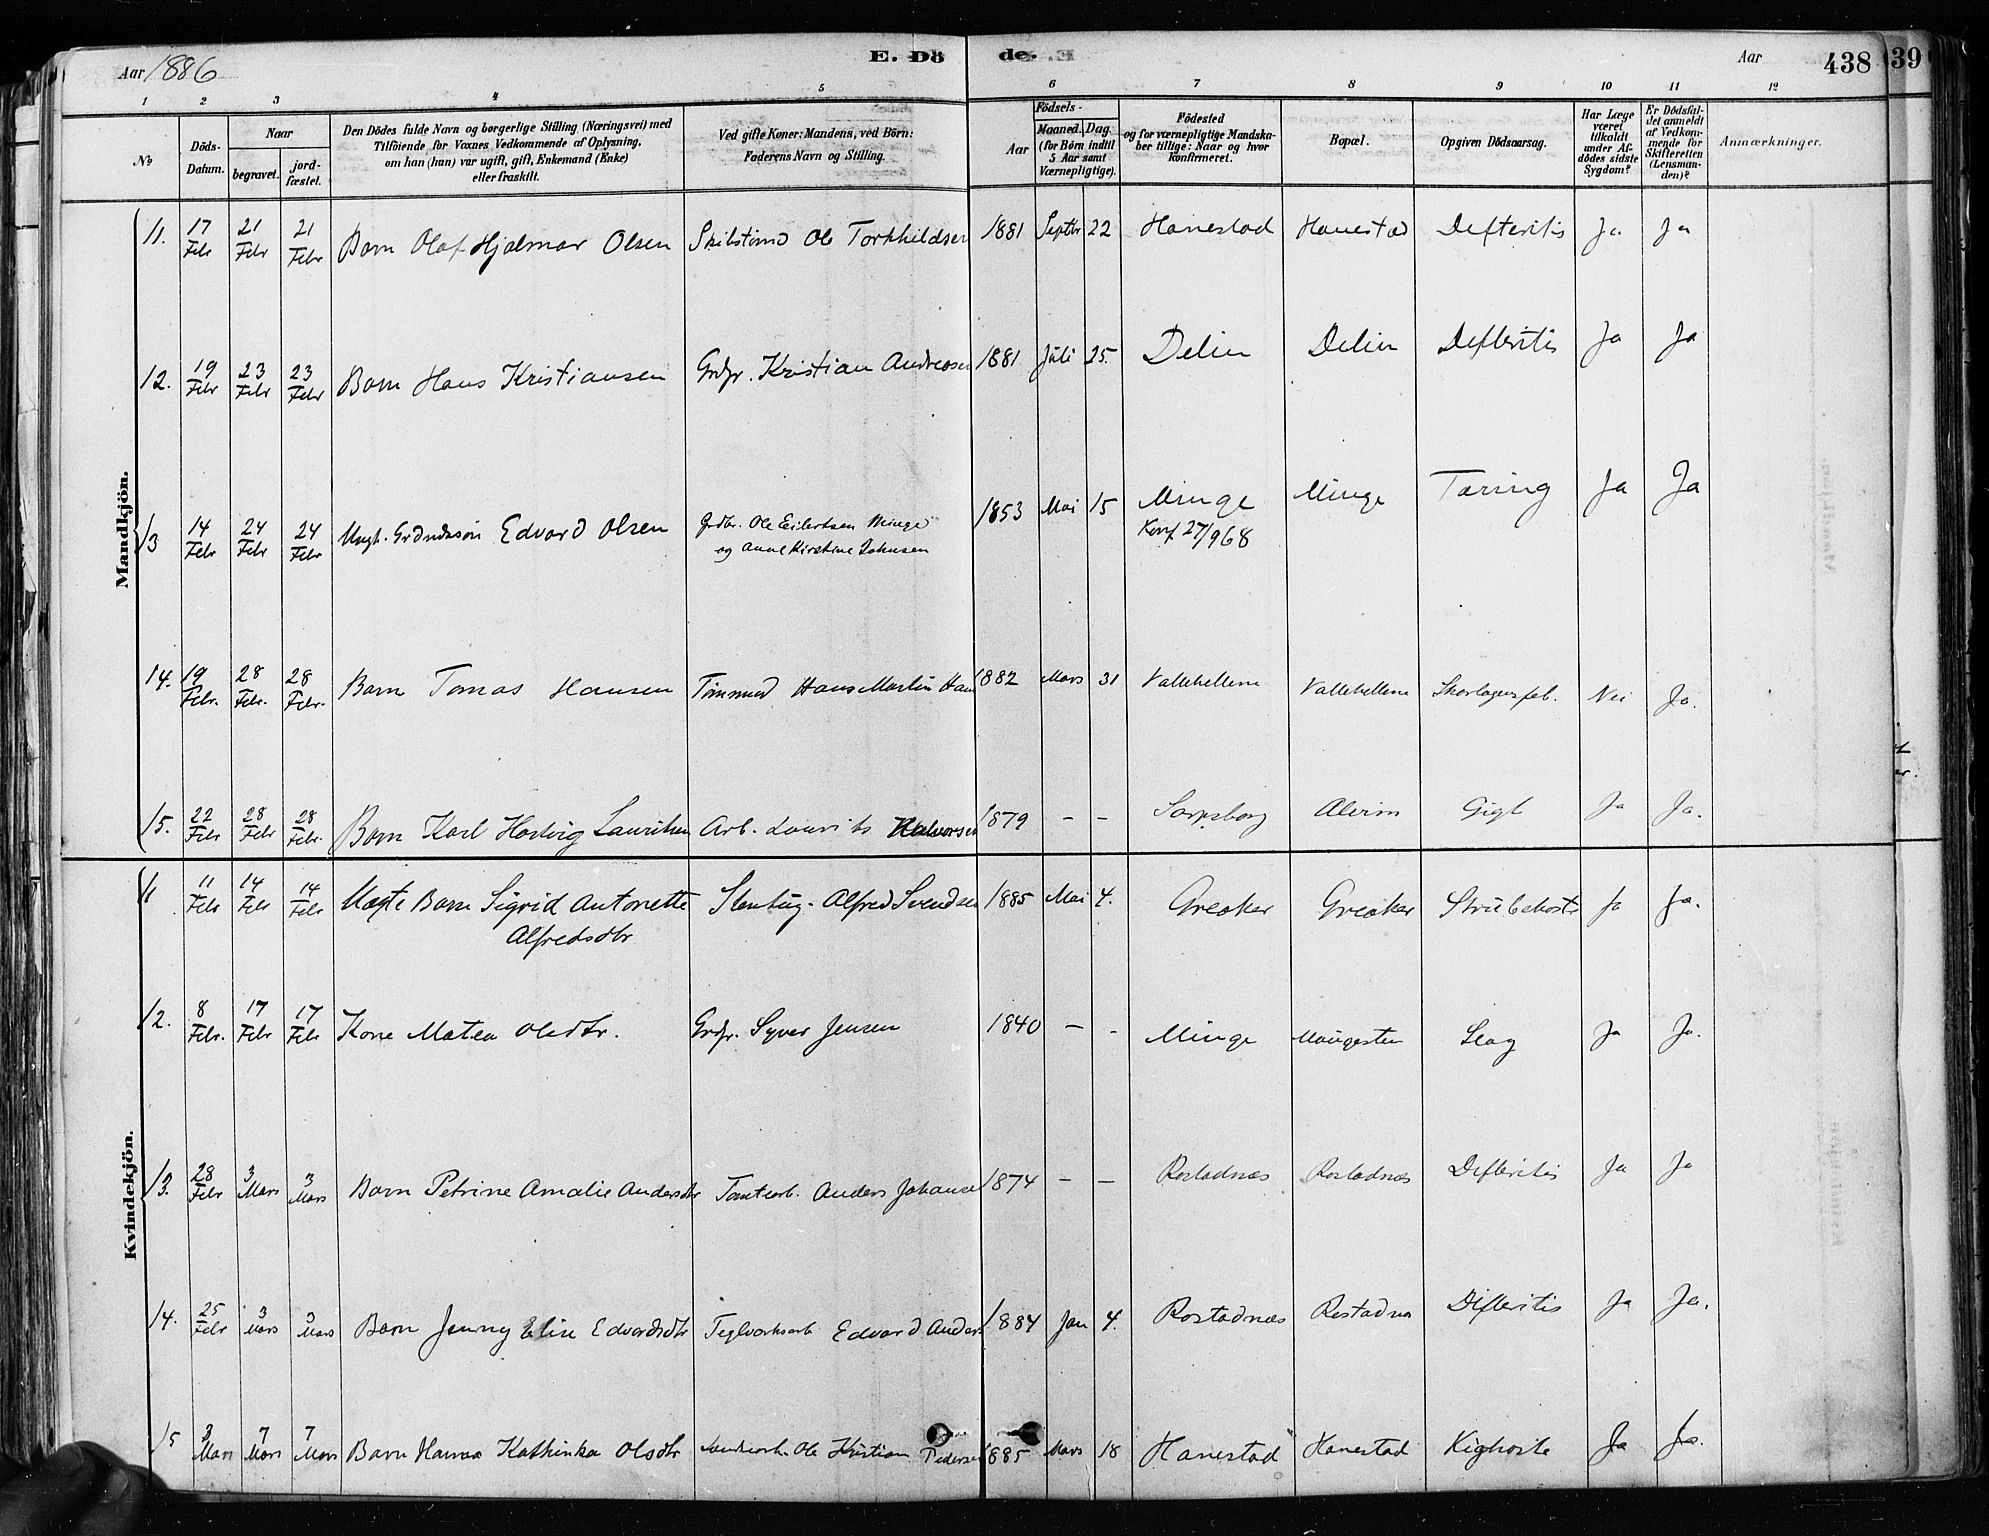 Aar 1886 E. Dö de. Aar 438 39
1 2 3 4 5 6 7 8 9 10 11 12
No Döds-Datum. Naar begravet. jord-fæstet. Den Dödes fulde Navn og borgerlige Stilling (Næringsvei) med Tilföiende for Voxnes Vedkommende af Oplysning, om han (hun) var ugift, gift, Enkemand (Enke) eller fraskilt. Ved gifte Koner: Mandens, ved Börn: Faderens Navn og Stilling. Födsels- Aar Maaned. Dag. (for Börn indtil 5 Aar samt Værnepligtige). Födested og for værnepligtige Mandskaber tillige: Naar og hvor konfirmeret. Bopæl. Opgiven Dödsaarsag. Har Læge været tilkaldt under Afdödes sidste Sygdom? Er Dödsfaldet anmeldt af Vedkommende for Skifteretten (Lensmanden)? Anmærkninger.
Mandkjön.
11. 17 Febr 21 Febr 21 Febr Barn Olaf Hjalmar Olsen Skibstømd Ole Torkhildsen 1881 Septbr 22 Hanestad Hanestad Defteritis Ja Ja
12. 19 Febr 23 Febr 23 Febr Barn Hans Kristiansen Grdbr. Kristian Andreasen 1881 Juli 25. Delin Delin Defteritis Ja Ja
13 14 Febr 24 Febr 24 Febr Ungk. Grdmdssøn Edvard Olsen Grdbr. Ole Eilertsen Minge 1853 Mai 15 Minge Minge Tæring Ja Ja
og Anne Kirstine Johnsen Konf 27/9 68
14. 19 Febr. 28 Febr. 28 Febr. Barn Tomas Hansen Tømmmd Hans Martin Han 1882 Mars 31 Vallehellene Vallehellene Skarlagensfeb. Nei Ja.
15. 22 Febr 28 Febr 28 Febr. Barn Karl Hartvig Lauritsen Arb. Laurits Halvorsen 1879 - - Sarpsborg Alvim Gigt Ja Ja.
Kvindekjön.
11 11 Febr 14 Febr 14 Febr Uægte Barn Sigrid Antonette Stenhug. Alfred Svendsen 1885 Mai 4. Greaker Greaker Strubehoste Ja Ja.
Alfredsdtr
12. 8 Febr. 17 Febr 17 Febr Kone Matea Olsdtr. Grdbr. Syver Jensen 1840 - - Minge Maugesten Slag Ja Ja.
13. 28 Febr 3 Mars 3 Mars Barn Petrine Amalie Andersdtr Tomtearb. Anders Johanse 1874 - - Rostadnæs Rostadnæs Difteritis Ja Ja
14. 25 Febr 3 Mars 3 Mars Barn Jenny Elise Edvardsdtr Teglverksarb Edvard Anders 1884 Jan 4. Rostadnæs Rostadnæs Difteritis Ja Ja.
15 3 Mars 7 Mars 7 Mars Barn Hanna Kathinka Olsdtr Ole Kristian Pedersen 1885 Mars 18 Hanestad Hanestad Kighoste Ja Ja.